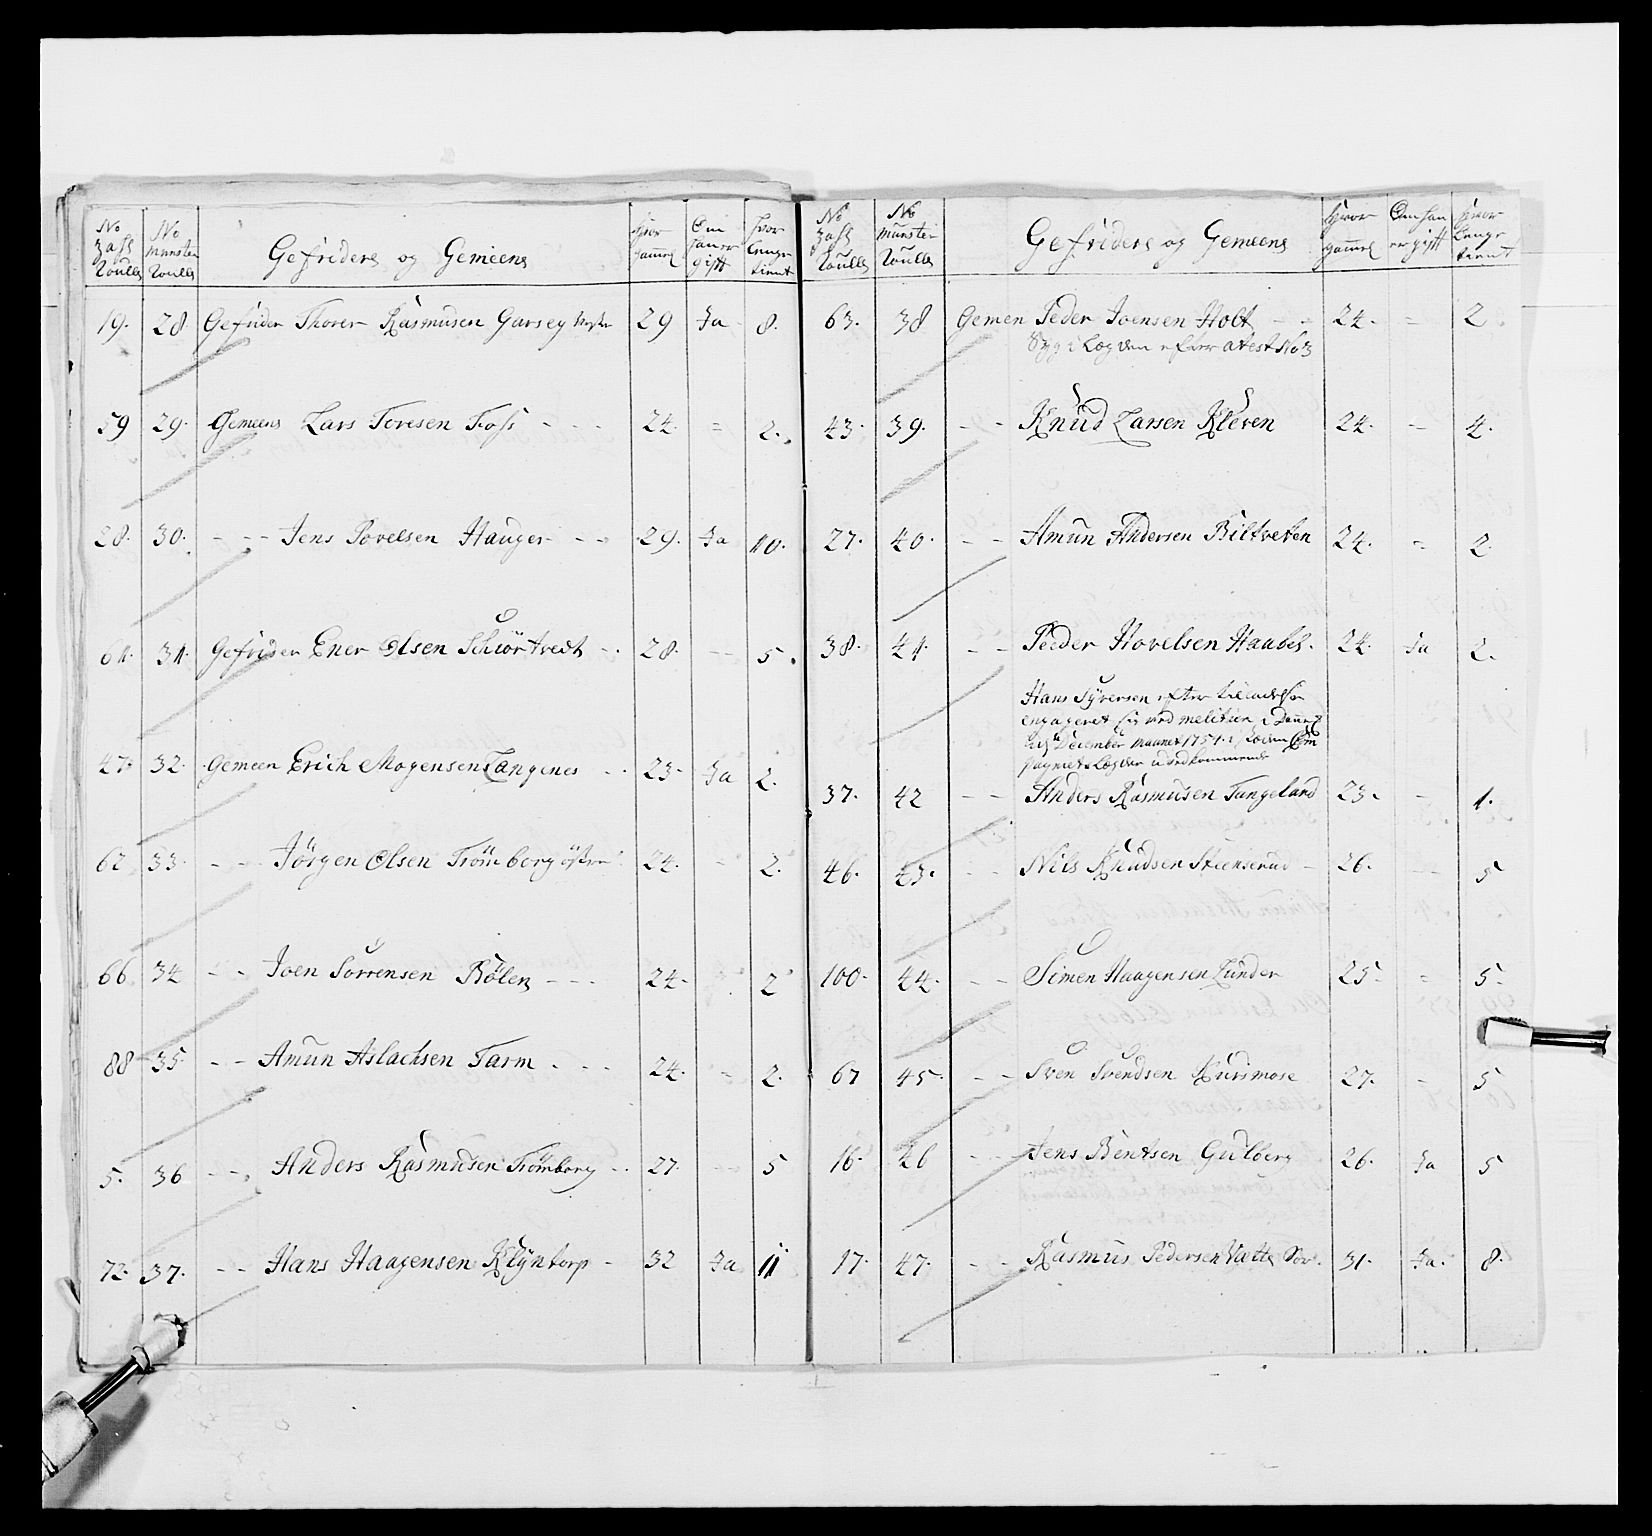 No Zahl Roulle | No Munster Roulle | Gefriders og Gemeens | Hvor gammel | Om han er gift | Hvor lenge tient
19. 28 Gefrider Thorer Rasmusen Garseg 29 Ja 8.
59 29. Gemeens Lars Toresen Foss - - - 24. = 2.
28. 30. - - - Jens Povelsen Hauger - - 29. Ja 10.
61. 31. Gefrider Ener Olsen Schiörtvedt - . 28. -- 5.
47. 32. Gemeen Erich Mogensen Langenes - . 23. Ja 2.
62 33. - - Jörgen Olsen Trömborg östre 24. - 2.
66. 34 - - Joen Sörrensen Bölen - - - 24. 2
88 35. - - Amun Aslachsen Tarm . - - - 24. - 2.
5. 36 - - . Anders Rasmusen Trömborg - . 27. -- 5
72. 37. - - Hans Haagensen Klÿntorp - 32 Ja 11
No Zahl Roulle | No Munster Roulle | Gefriders og Gemeens | Hvor gammel | Om han er gift | Hvor lenge tient
63. 38 Gemen Peder Joensen Holt - - 24. = 2
Syg i Legden efter atest No 3
43. 39. - - Knud Larsen Kleven 24. - 4.
27. 40. - - Amun Andersen Biltveten 24. = 2.
38. 41. - - Peder Hovelsen Haabel. 24. Ja 2.
Hans Syversen efter
engageret sig ved melitien i
December Maanet 1751. i
Legder
37. 42 - - Anders Rasmusen Tangeland 23. - 1.
46. 43. - - Nils Knudsen Steenserud - 26. -- 5
100. 44. - - Simen Haagensen Lunder 25. = 5.
67 45. - - Sven Svendsen Kurimose 27. - 5
16. 46 - - Jens Bentsen Gulberg 26. Ja 5
17. 47. - - Rasmus Pedersen Vatte 31. Ja. 8.